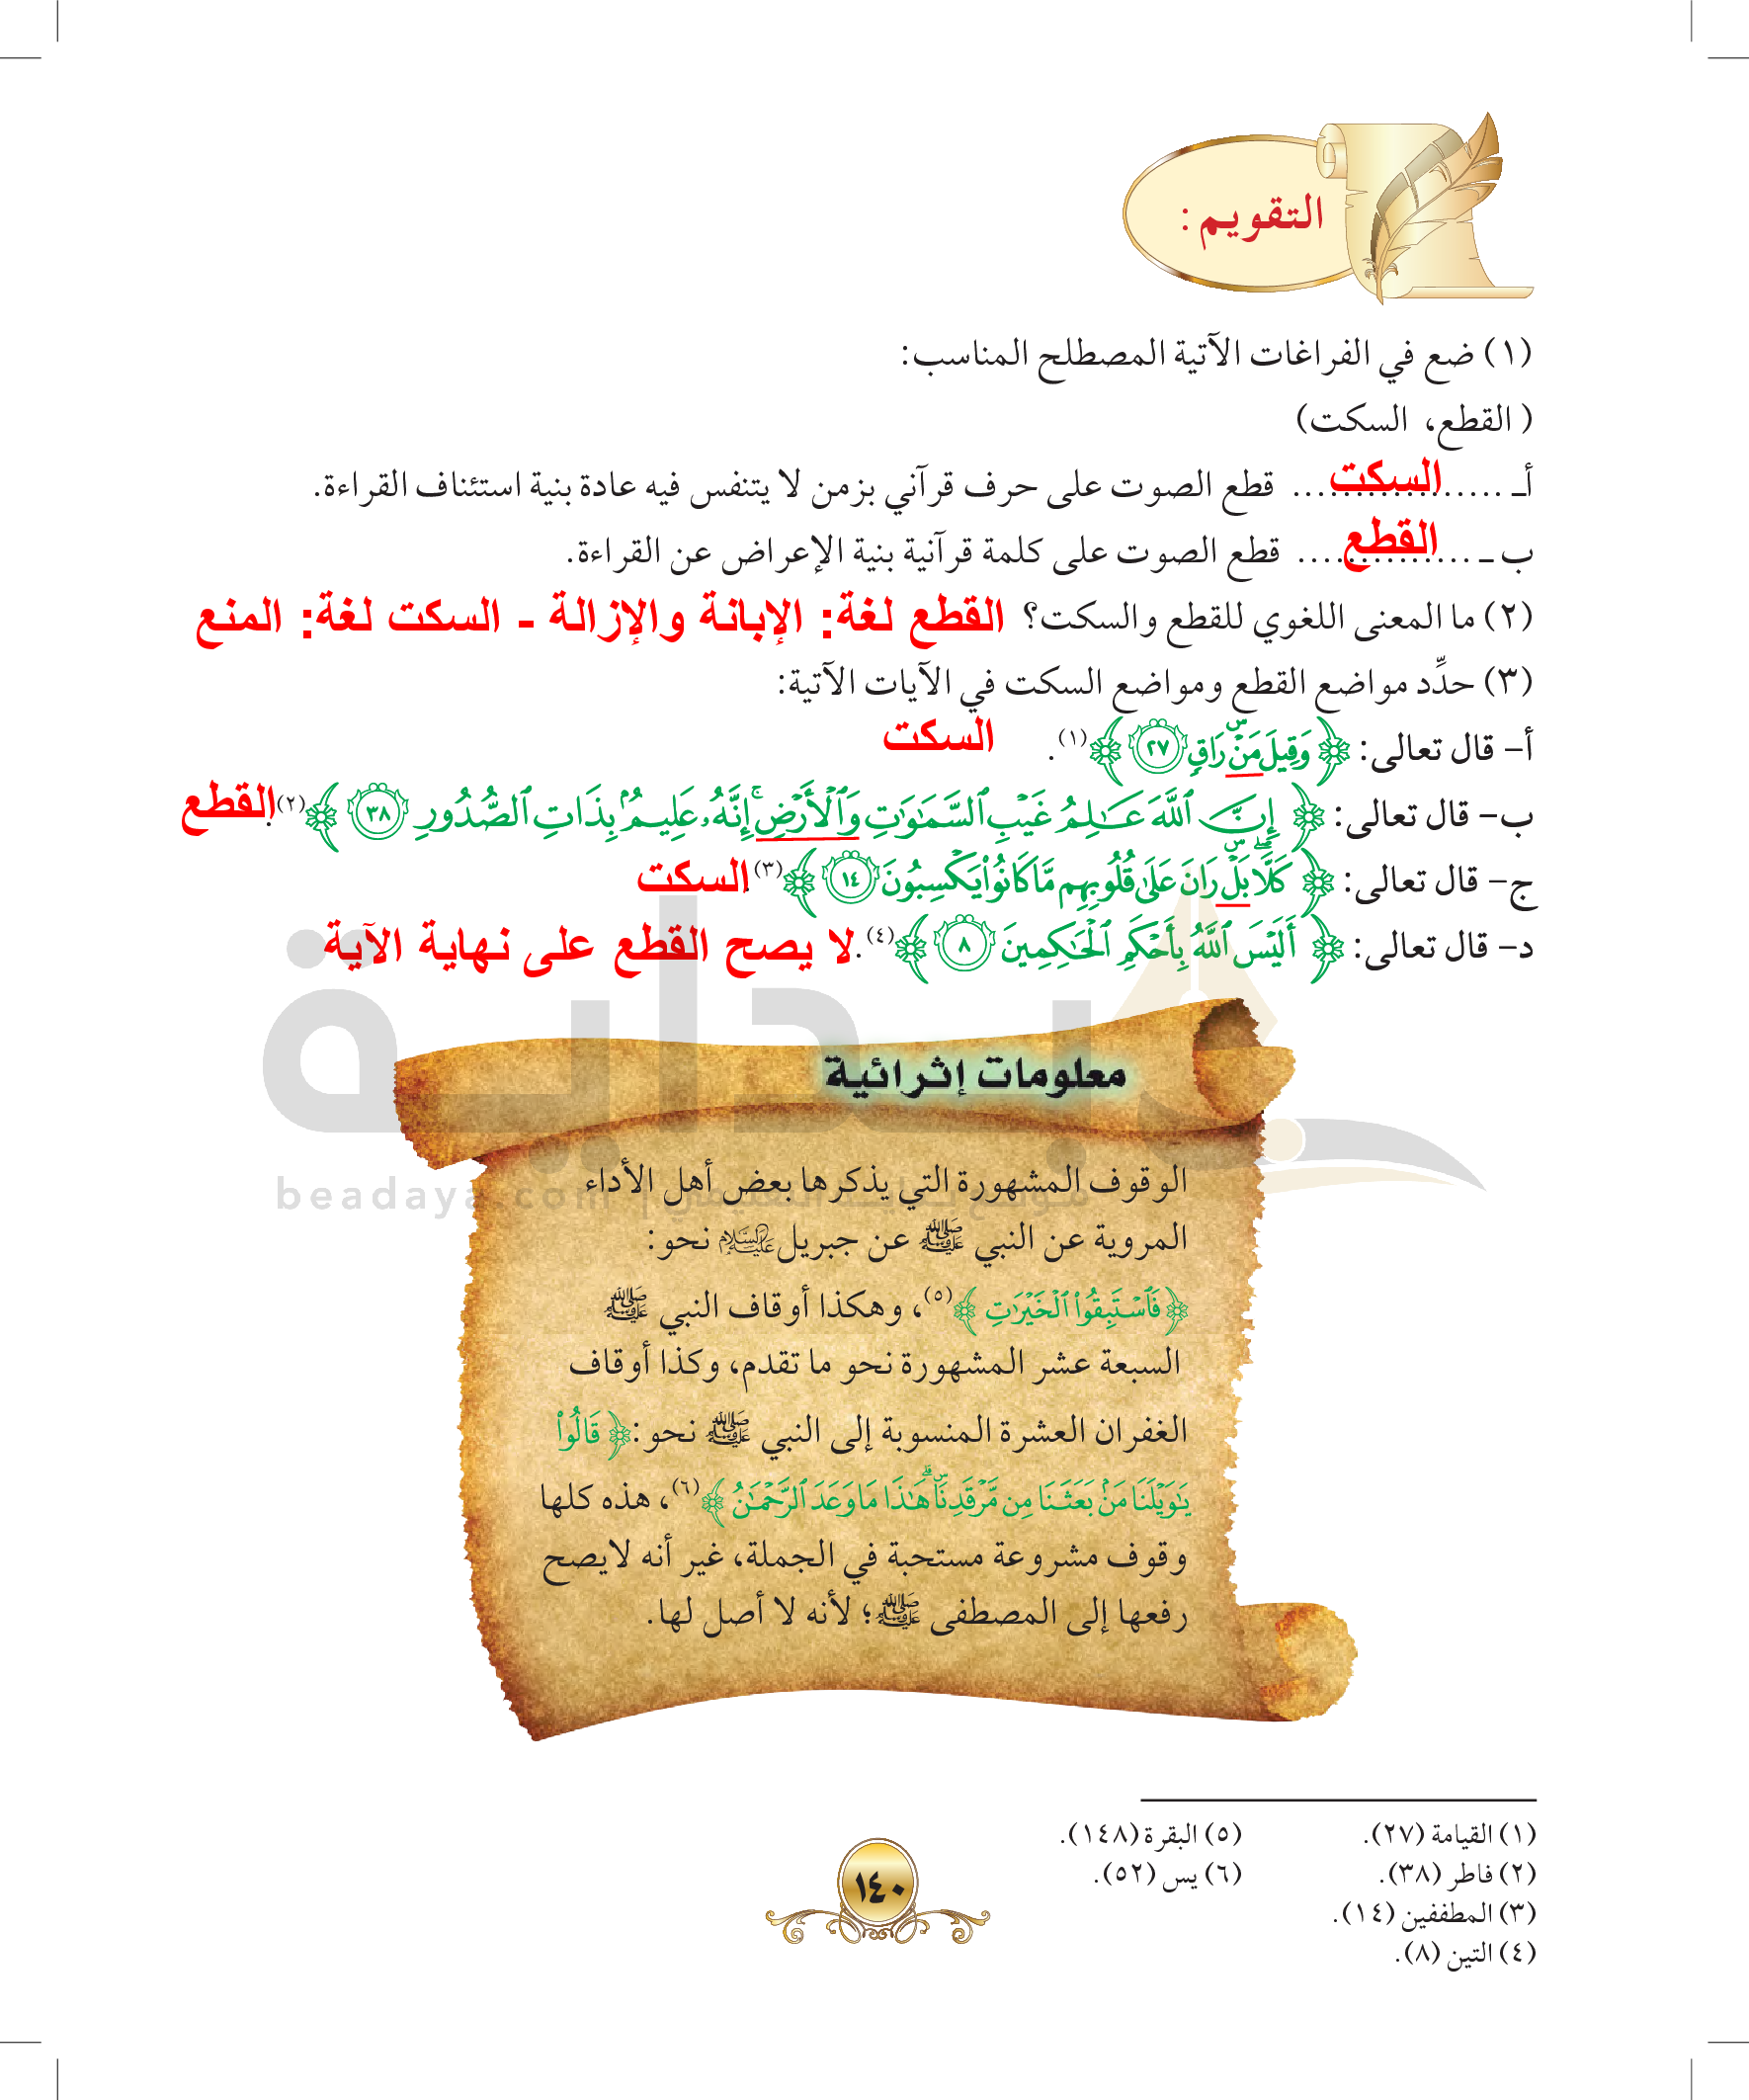 التقويم :
(١) ضع في الفراغات الآتية المصطلح المناسب:
( القطع، السكت)
أـ ................. السكت قطع الصوت على حرف قرآني بزمن لا يتنفس فيه عادة بنية استئناف القراءة.
ب ـ .............. القطع قطع الصوت على كلمة قرآنية بنية الإعراض عن القراءة.
(٢) ما المعنى اللغوي للقطع والسكت؟ القطع لغة: الإبانة والإزالة - السكت لغة: المنع
(٣) حدِّد مواضع القطع ومواضع السكت في الآيات الآتية:
أ- قال تعالى: ﴿ وَقِيلَ مَنْۜ رَاقٍ ٢٧ ﴾(١). السكت
ب- قال تعالى: ﴿ إِنَّ ٱللَّهَ عَـٰلِمُ غَيْبِ ٱلسَّمَـٰوَٰتِ وَٱلْأَرْضِۚ إِنَّهُۥ عَلِيمُۢ بِذَاتِ ٱلصُّدُورِ ٣٨ ﴾(٢). القطع
ج- قال تعالى: ﴿ كَلَّاۖ بَلْۜ رَانَ عَلَىٰ قُلُوبِهِم مَّا كَانُوا۟ يَكْسِبُونَ ١٤ ﴾(٣). السكت
د- قال تعالى: ﴿ أَلَيْسَ ٱللَّهُ بِأَحْكَمِ ٱلْحَـٰكِمِينَ ٨ ﴾(٤). لا يصح القطع على نهاية الآية
بداية
معلومات إثرائية
beadaya.com | موقع بداية التعليمي
الوقوف المشهورة التي يذكرها بعض أهل الأداء
المروية عن النبي ﷺ عن جبريل عليه السلام نحو:
﴿ فَٱسْتَبِقُوا۟ ٱلْخَيْرَٰتِ ﴾(٥)، وهكذا أوقاف النبي ﷺ
السبعة عشر المشهورة نحو ما تقدم، وكذا أوقاف
الغفران العشرة المنسوبة إلى النبي ﷺ نحو: ﴿ قَالُوا۟
يَـٰوَيْلَنَا مَنۢ بَعَثَنَا مِن مَّرْقَدِنَاۜۗ هَـٰذَا مَا وَعَدَ ٱلرَّحْمَـٰنُ ﴾(٦)، هذه كلها
وقوف مشروعة مستحبة في الجملة، غير أنه لايصح
رفعها إلى المصطفى ﷺ؛ لأنه لا أصل لها.
(١) القيامة (٢٧).
(٢) فاطر (٣٨).
(٣) المطففين (١٤).
(٤) التين (٨).
(٥) البقرة (١٤٨).
(٦) يس (٥٢).
١٤٠